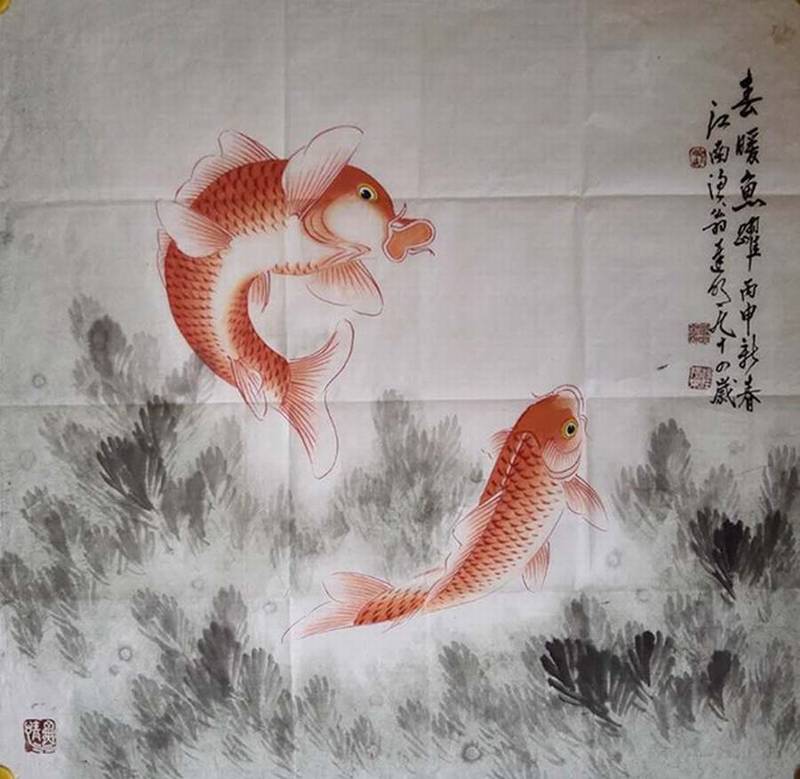 春暖魚躍 丙申新春
江南漁翁達明九十四歲